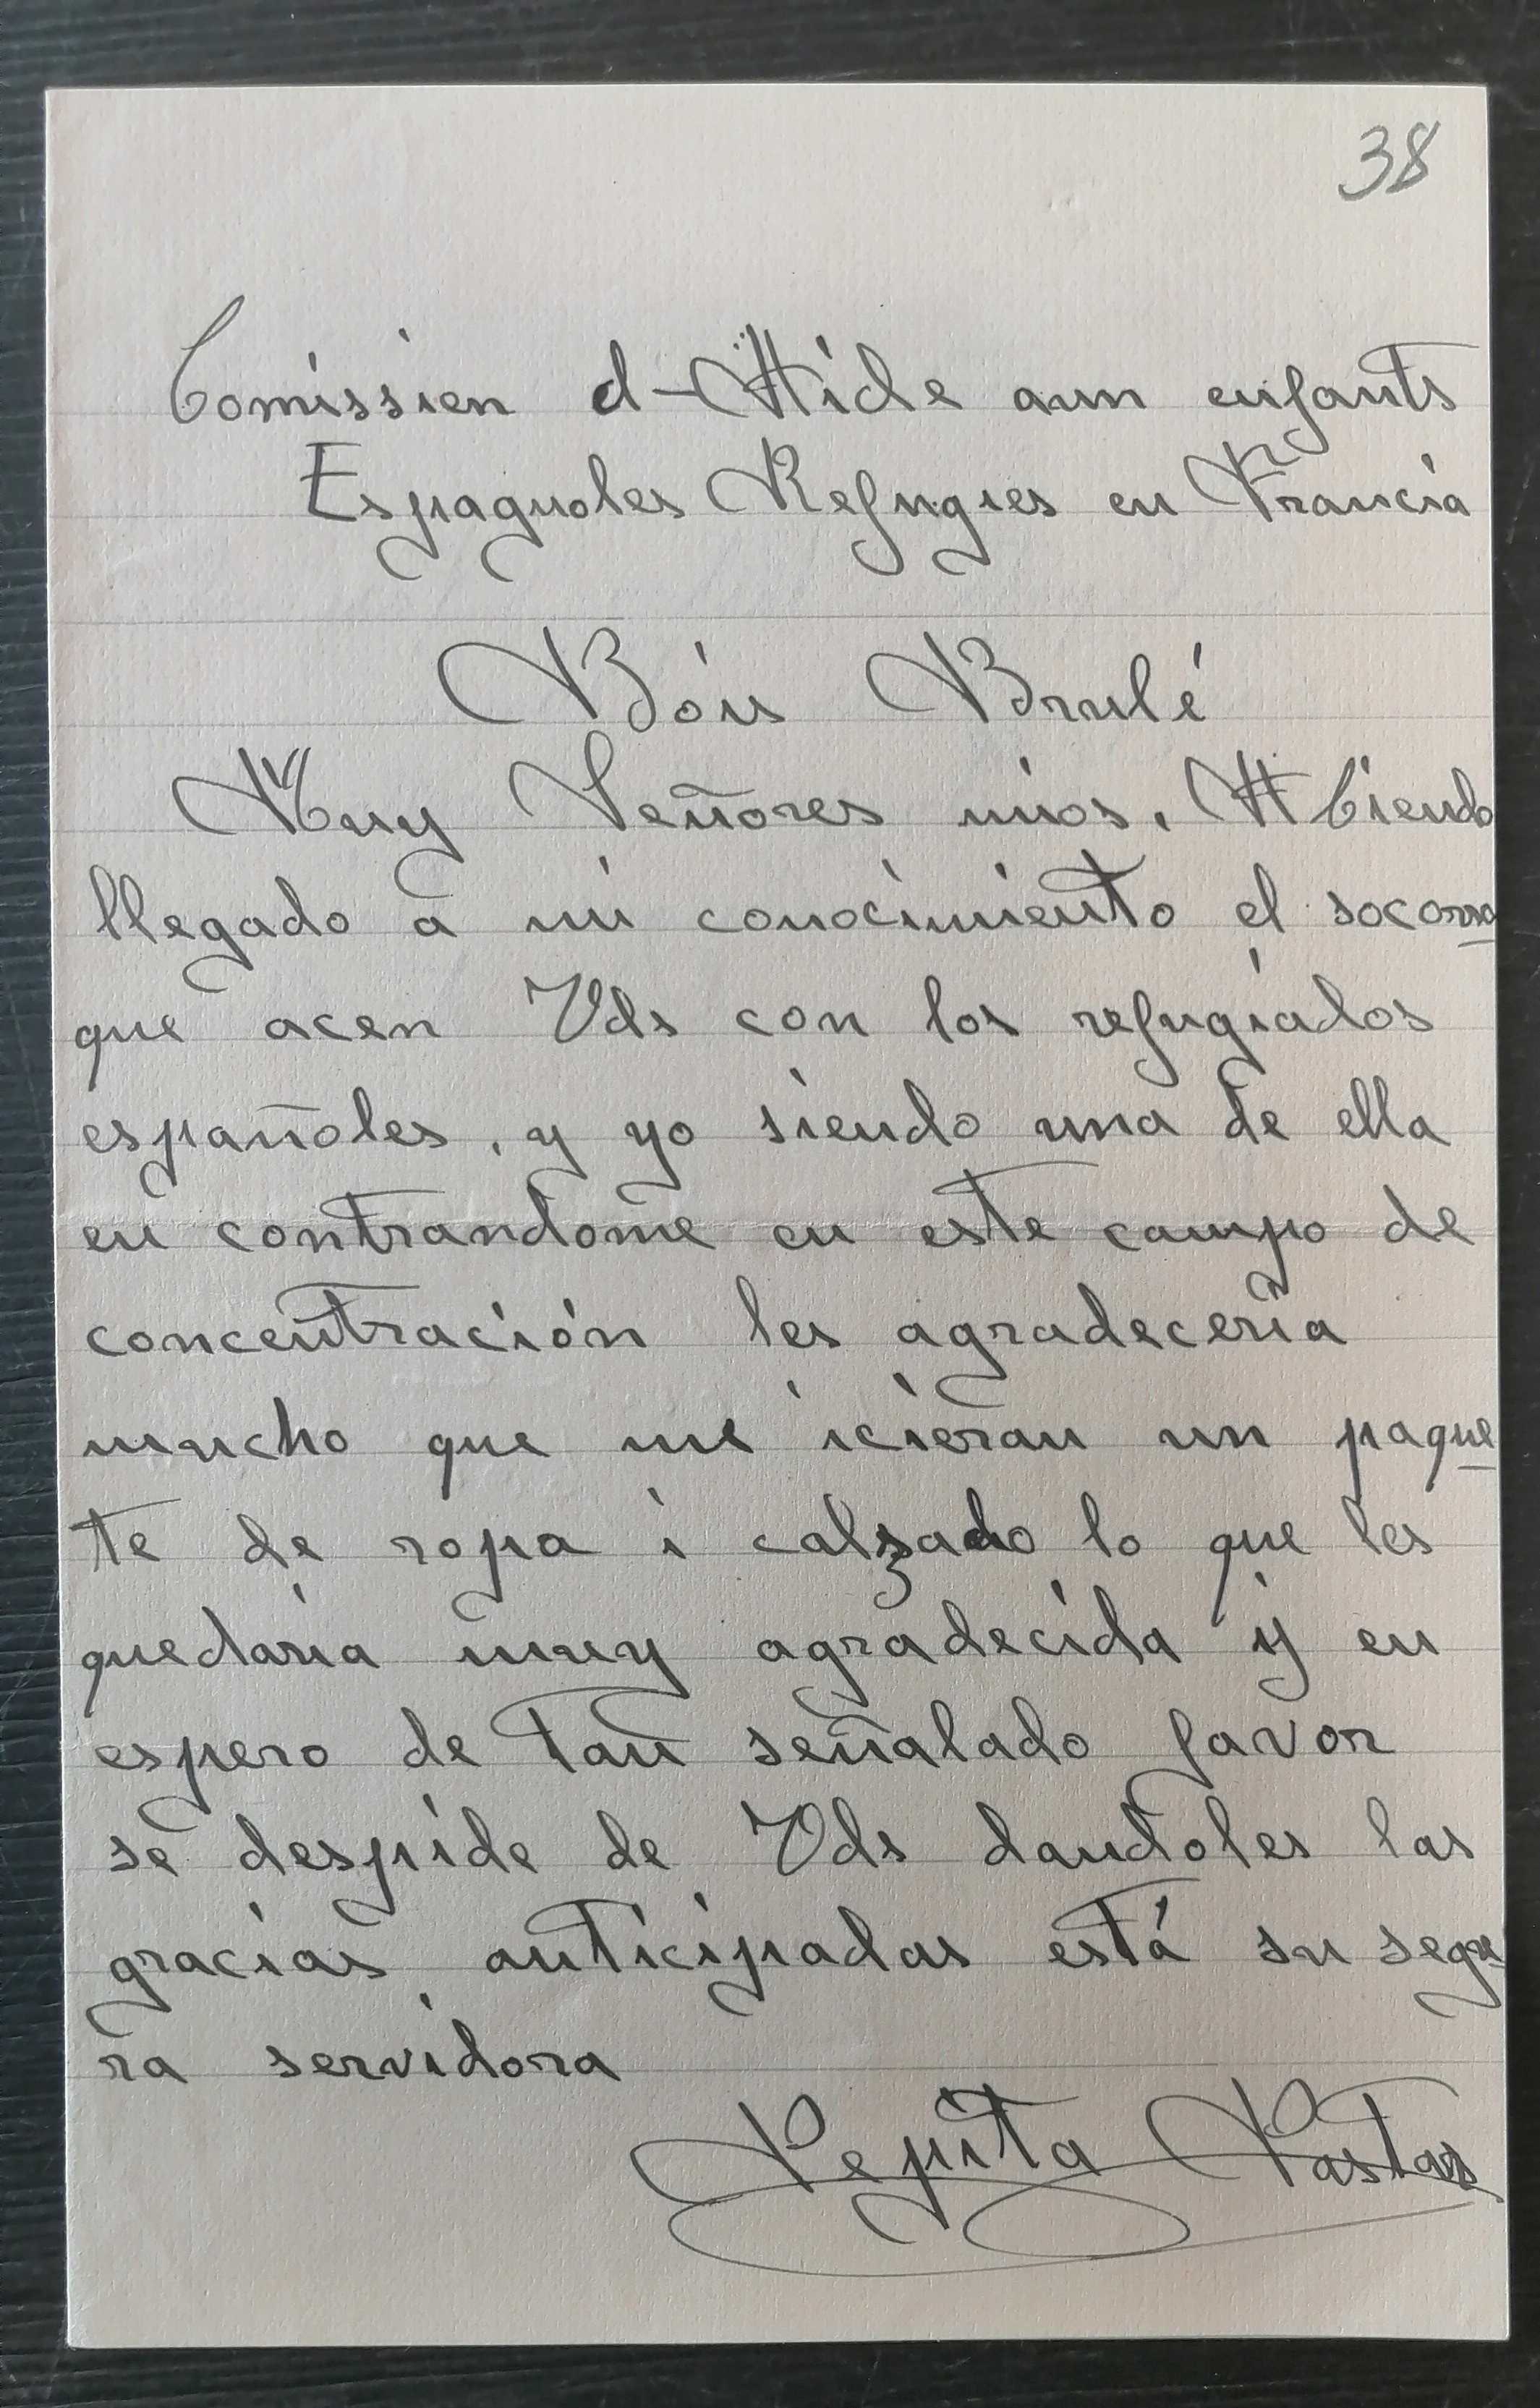 38
Comissien d-Aide aun enfants
Espagnoles Refugies en Francia
Bóis Brulé
Muy Señores mios. Abiendo
llegado a mi conocimiento el socorro
que acen Vds con los refugiados
españoles, y yo siendo una de ella
en contrandome en este campo de
concentración les agradeceria
mucho que me icieran un paque
te de ropa i calzado lo que les
quedaria muy agradecida y en
espero de tan señalado favor
se despide de Vds dandoles las
gracias anticipadas está su segu
ra servidora
Pepita Pastor